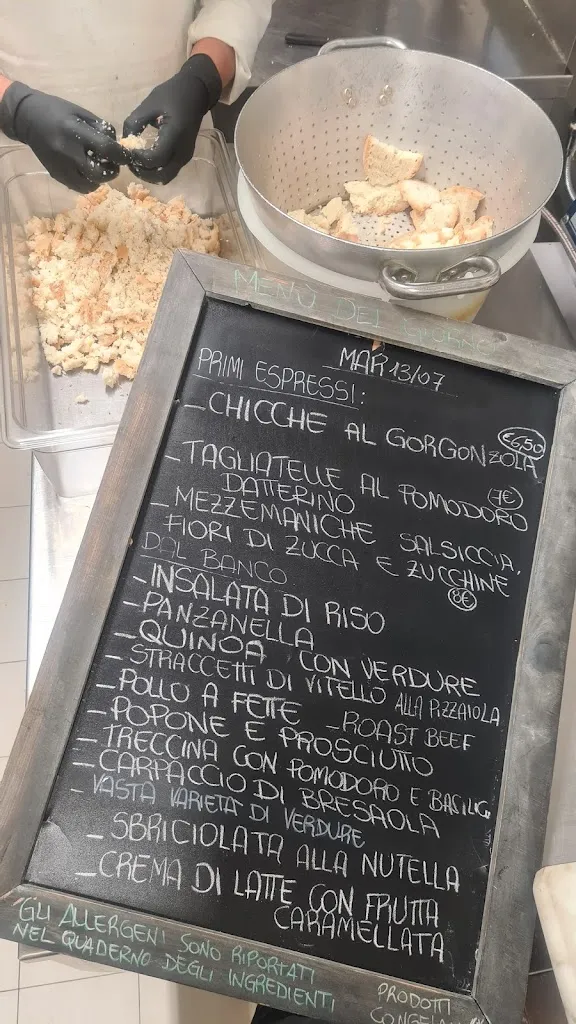 MENÙ DEL GIORNO
MAR 13/07
PRIMI ESPRESSI:
- CHICCHE AL GORGONZOLA €6,50
- TAGLIATELLE AL POMODORO 7€
DATTERINO
- MEZZEMANICHE SALSICCIA,
FIORI DI ZUCCA E ZUCCHINE 8€
DAL BANCO
- INSALATA DI RISO
- PANZANELLA
- QUINOA CON VERDURE
- STRACCETTI DI VITELLO ALLA PIZZAIOLA
- POLLO A FETTE - ROAST BEEF
- POPONE E PROSCIUTTO
- TRECCINA CON POMODORO E BASILICO
- CARPACCIO DI BRESAOLA
- VASTA VARIETA' DI VERDURE
- SBRICIOLATA ALLA NUTELLA
- CREMA DI LATTE CON FRUTTA
CARAMELLATA
"GLI ALLERGENI SONO RIPORTATI
NEL QUADERNO DEGLI INGREDIENTI
PRODOTTI